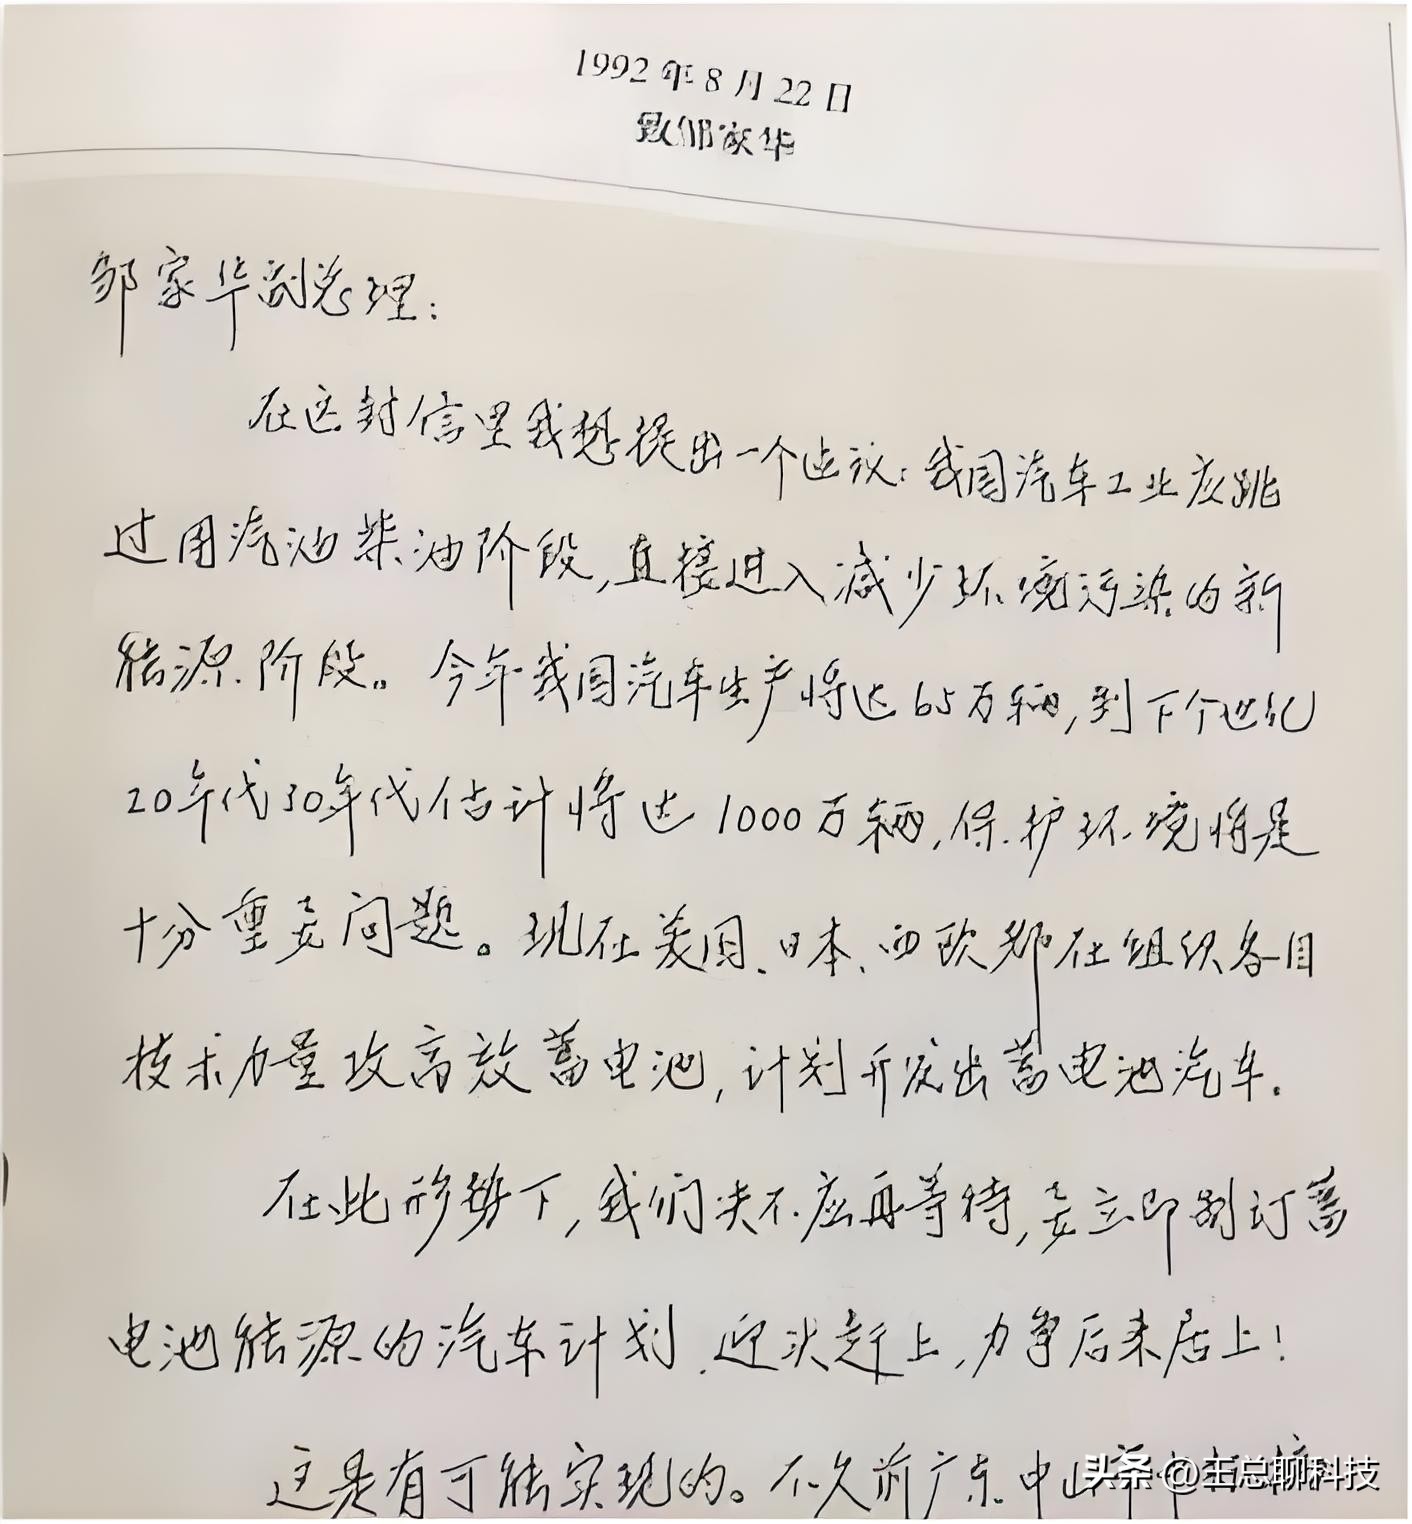 1992年8月22日
致邹家华
邹家华副总理：
在这封信里我想提出一个建议：我国汽车工业应跳
过用汽油柴油阶段，直接进入减少环境污染的新
能源阶段。今年我国汽车生产将达65万辆，到下个世纪
20年代30年代估计将达1000万辆，保护环境将是
十分重要问题。现在美国、日本、西欧都在组织各自
技术力量攻高效蓄电池，计划开发出蓄电池汽车.
在此形势下，我们决不应再等待，要立即制订蓄
电池能源的汽车计划，迎头赶上，力争后来居上！
这是有可能实现的。不久前广东中山市
头条 @王总聊科技